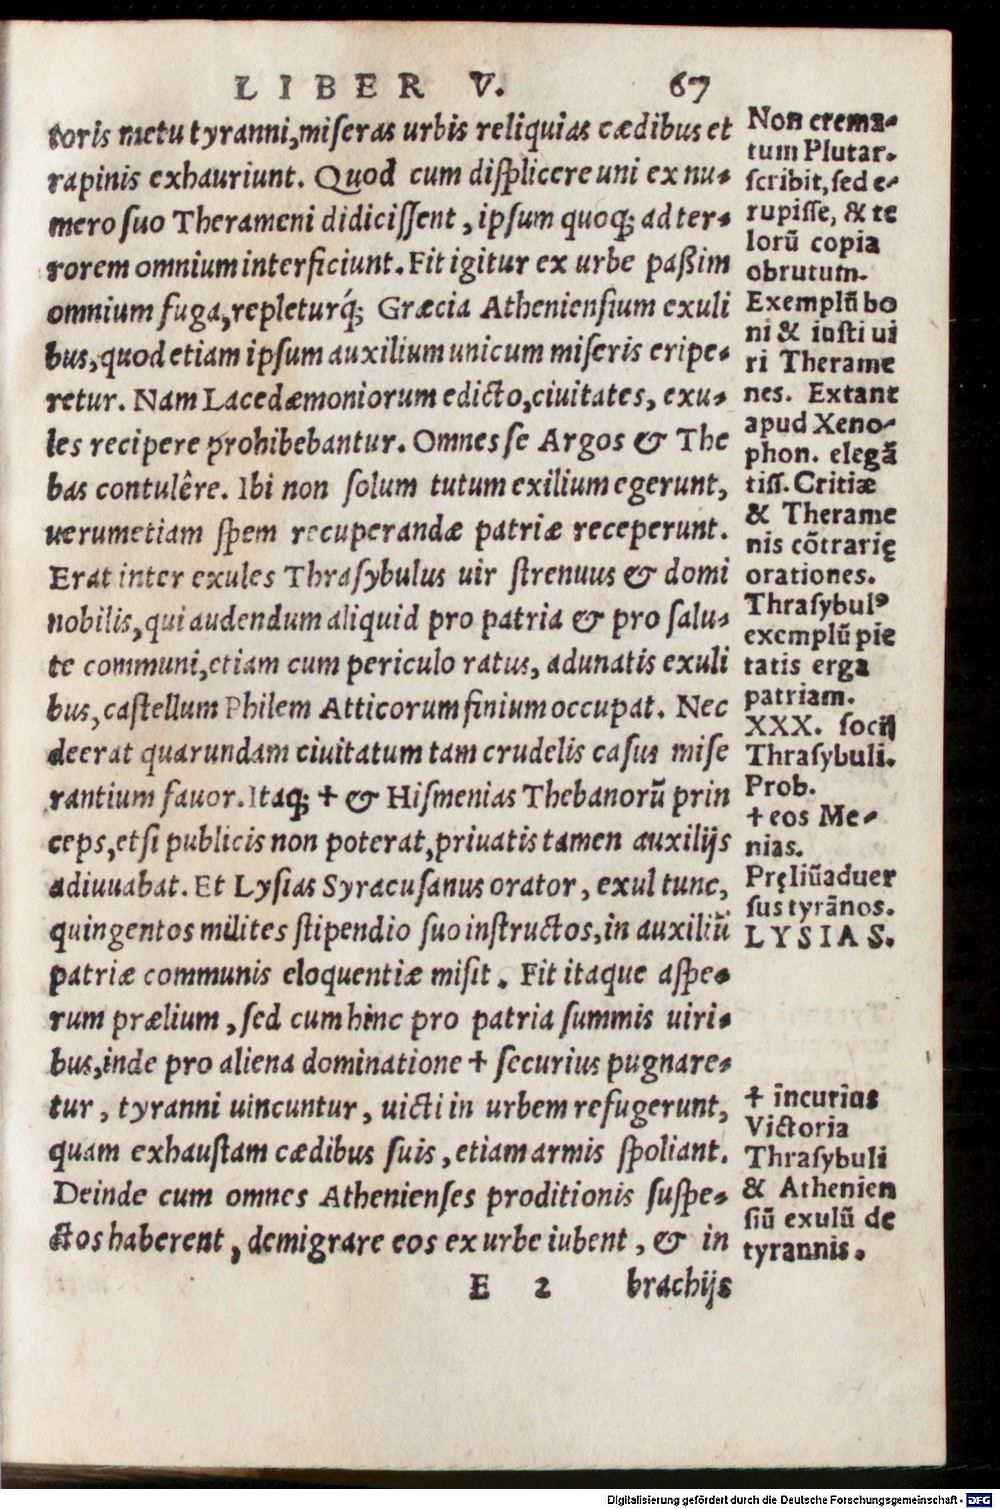 LIBER V. 67
toris metu tyranni, miseras urbis reliquias cædibus et
rapinis exhauriunt. Quod cum displicere uni ex nu-
mero suo Therameni didicissent, ipsum quoq; ad ter-
rorem omnium interficiunt. Fit igitur ex urbe paßim
omnium fuga, repleturq́; Græcia Atheniensium exuli
bus, quod etiam ipsum auxilium unicum miseris eripe-
retur. Nam Lacedæmoniorum edicto, ciuitates, exu-
les recipere prohibebantur. Omnes se Argos & The
bas contulêre. Ibi non solum tutum exilium egerunt,
uerumetiam spem recuperandæ patriæ receperunt.
Erat inter exules Thrasybulus uir strenuus & domi
nobilis, qui audendum aliquid pro patria & pro salu-
te communi, etiam cum periculo ratus, adunatis exuli
bus, castellum Philem Atticorum finium occupat. Nec
deerat quarundam ciuitatum tam crudelis casus mise
rantium fauor. Itaq; + & Hismenias Thebanorũ prin
ceps, etsi publicis non poterat, priuatis tamen auxilijs
adiuuabat. Et Lysias Syracusanus orator, exul tunc,
quingentos milites stipendio suo instructos, in auxiliũ
patriæ communis eloquentiæ misit. Fit itaque aspe-
rum prælium, sed cum hinc pro patria summis uiri-
bus, inde pro aliena dominatione + securius pugnare-
tur, tyranni uincuntur, uicti in urbem refugerunt,
quam exhaustam cædibus suis, etiam armis spoliant.
Deinde cum omnes Athenienses proditionis suspe-
ctos haberent, demigrare eos ex urbe iubent, & in
E 2 brachijs
Non crema-
tum Plutar.
scribit, sed e-
rupisse, & te
lorũ copia
obrutum.
Exemplũ bo
ni & iusti ui
ri Therame
nes. Extant
apud Xeno-
phon. elegã
tiss. Critiæ
& Therame
nis cõtrarię
orationes.
Thrasybulꝰ
exemplũ pie
tatis erga
patriam.
XXX. socij
Thrasybuli.
Prob.
+ eos Me-
nias.
Pręliũ aduer
sus tyrãnos.
LYSIAS.
+ incurius
Victoria
Thrasybuli
& Athenien
siũ exulũ de
tyrannis.
Digitalisierung gefördert durch die Deutsche Forschungsgemeinschaft - DFG